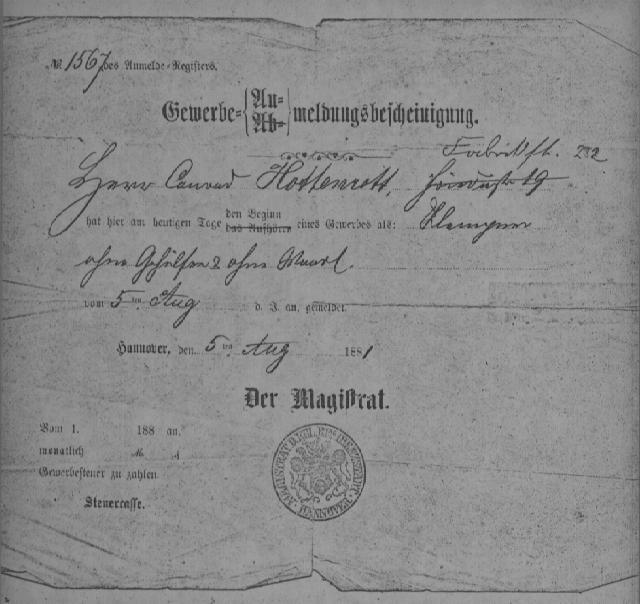 № 1567 des Anmelde-Registers.
Gewerbe-{An-
Ab-}meldungsbescheinigung.
Fabrikst. 232
Herr Conrad Hottenrott, 19
hat hier am heutigen Tage den Beginn
das Aufhören eines Gewerbes als: Klempner
ohne Gehülfen & ohne Waarl.
vom 5ten Aug d. J. an, gemeldet.
Hannover, den 5ten Aug 1881
Der Magistrat.
Vom 1. 188 an,
monatlich M. ₰
Gewerbesteuer zu zahlen
Steuercasse.
MAGISTRAT D. KGL. HAUPT
HANNOVER